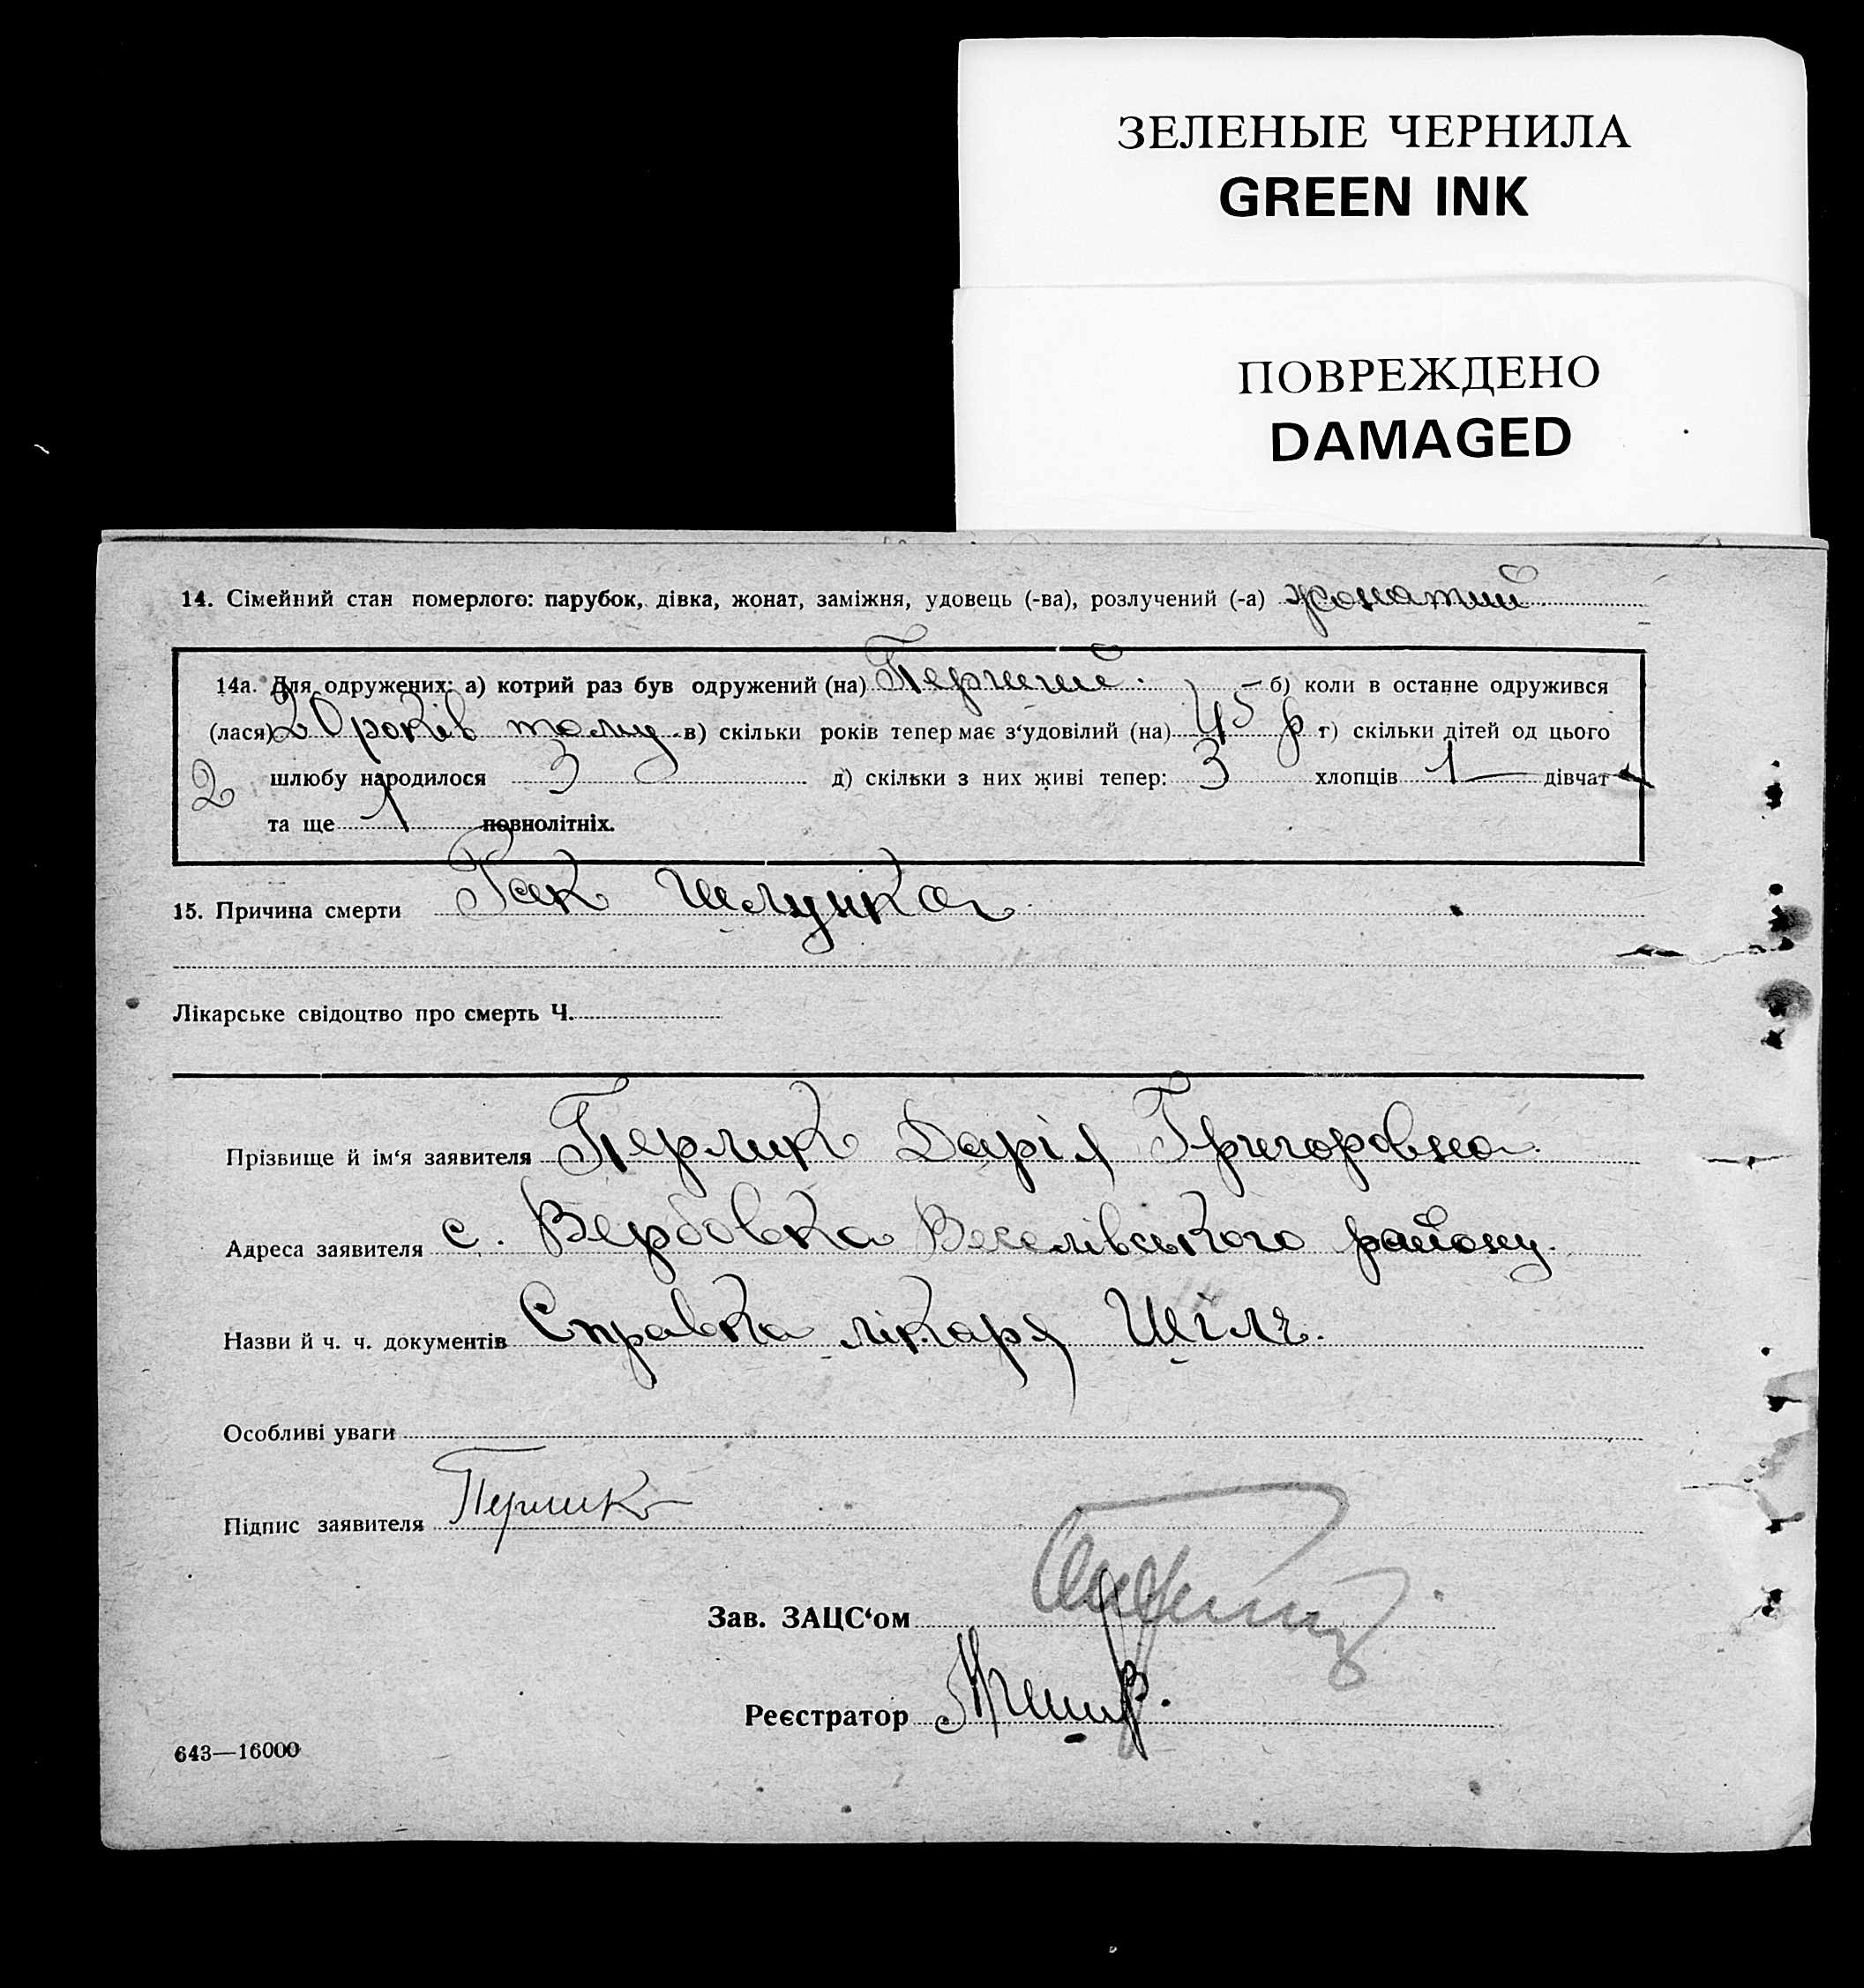 ЗЕЛЕНЫЕ ЧЕРНИЛА
GREEN INK
ПОВРЕЖДЕНО
DAMAGED
14. Сімейний стан померлого: парубок, дівка, жонат, заміжня, удовець (-ва), розлучений (-а) жонатий
14а. Для одружених: а) котрий раз був одружений (на) Перший. — б) коли в останнє одружився
(лася) 20 років тому в) скільки років тепер має з‘удовілий (на) 45 р г) скільки дітей од цього
2 шлюбу народилося 3 д) скільки з них живі тепер: 3 хлопців 1 — дівчат
та ще 1 повнолітніх.
15. Причина смерти Рак Шлунка
Лікарське свідоцтво про смерть Ч.
Прізвище й ім‘я заявителя Перлик Дарія Григоровна
Адреса заявителя с. Вербовка Веселівського району.
Назви й ч. ч. документів Справка лікаря
Особливі уваги
Підпис заявителя Перлик
Зав. ЗАЦС‘ом
Реєстратор
643—16000